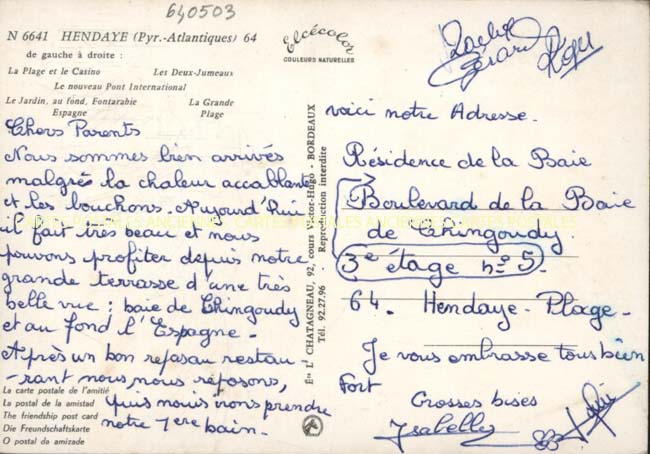 640503
N 6641 HENDAYE (Pyr.-Atlantiques) 64
de gauche à droite :
La Plage et le Casino Les Deux-Jumeaux
Le nouveau Pont International
Le Jardin, au fond, Fontarabie La Grande
Espagne Plage
Elcécolor
COULEURS NATURELLES
Chers Parents
Nous sommes bien arrivés
malgré la chaleur accablante
et les bouchons. Aujourd'hui
il fait très beau et nous
pouvons profiter depuis notre
grande terrasse d'une très
belle vue : baie de Chingoudy
et au fond l'Espagne.
Après un bon repas au restau
-rant nous nous reposons,
puis nous irons prendre
notre 1ere bain.
La carte postale de l'amitié
La postal de la amistad
The friendship post card
Die Freundschaftskarte
O postal da amizade
Éts L. CHATAGNEAU, 92, cours Victor-Hugo - BORDEAUX
Tél. 92.27.96 - Reproduction interdite
CARTES POSTALES ANCIENNES
Gérard
voici notre Adresse.
Résidence de la Baie
Boulevard de la Baie
de Chingoudy.
3e étage no 5.
64. Hendaye-Plage-
Je vous embrasse tous bien
Fort
Grosses bises
Isabelle